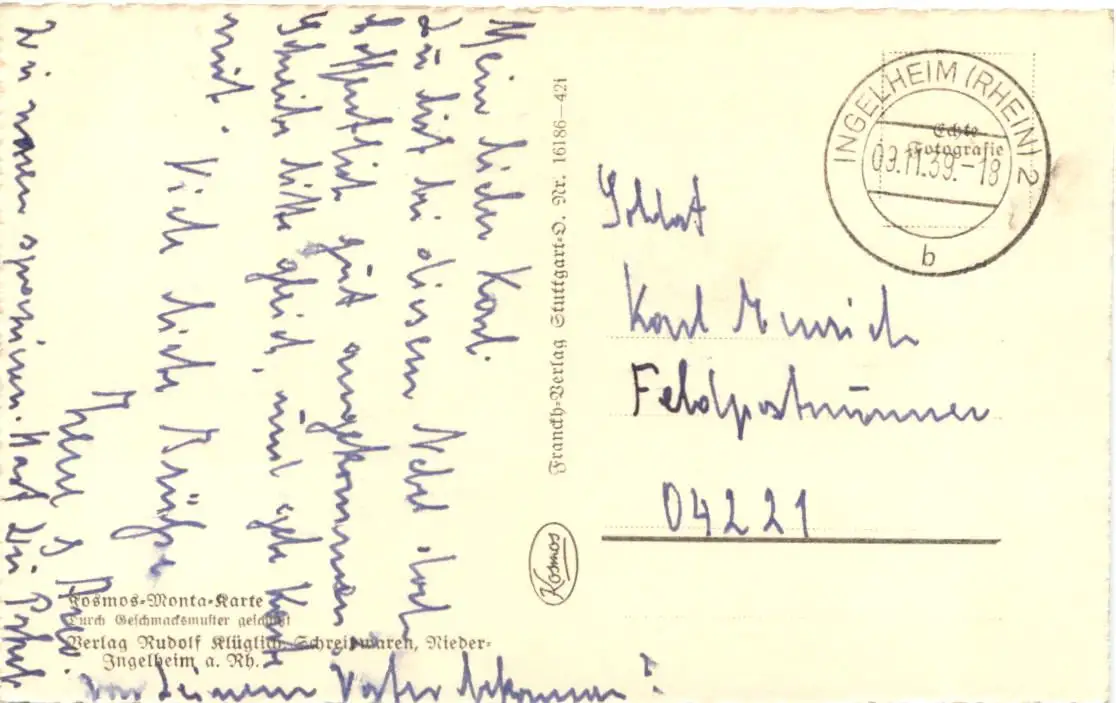 Mein lieber Karl.
Du bist bei diesem Nebel doch
hoffentlich gut angekommen
Schreibe bitte gleich, und geh
mit.
Viele liebe Grüße
Wir waren spazieren. Hast Du
von Deinem Vater bekommen?
Franckh-Verlag Stuttgart-O. Nr. 16186—42i
Kosmos
INGELHEIM (RHEIN) 2
09.11.39.-18
b
Echte
Fotografie
Soldat
Karl
Feldpostnummer
04221
Kosmos-Monta-Karte
Durch Geschmacksmuster geschützt
Verlag Rudolf Klüglich, Schreibwaren, Nieder-
Ingelheim a. Rh.